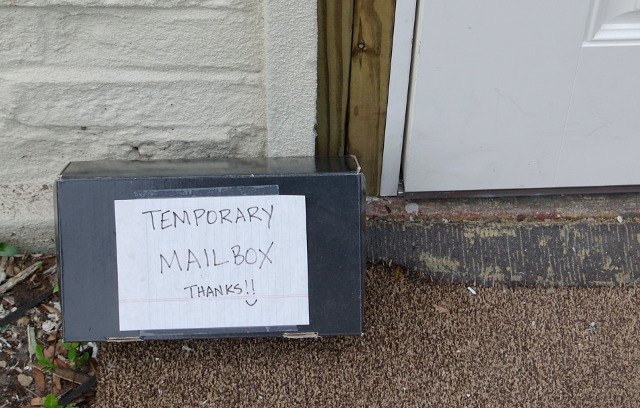 TEMPORARY
MAILBOX
THANKS!!